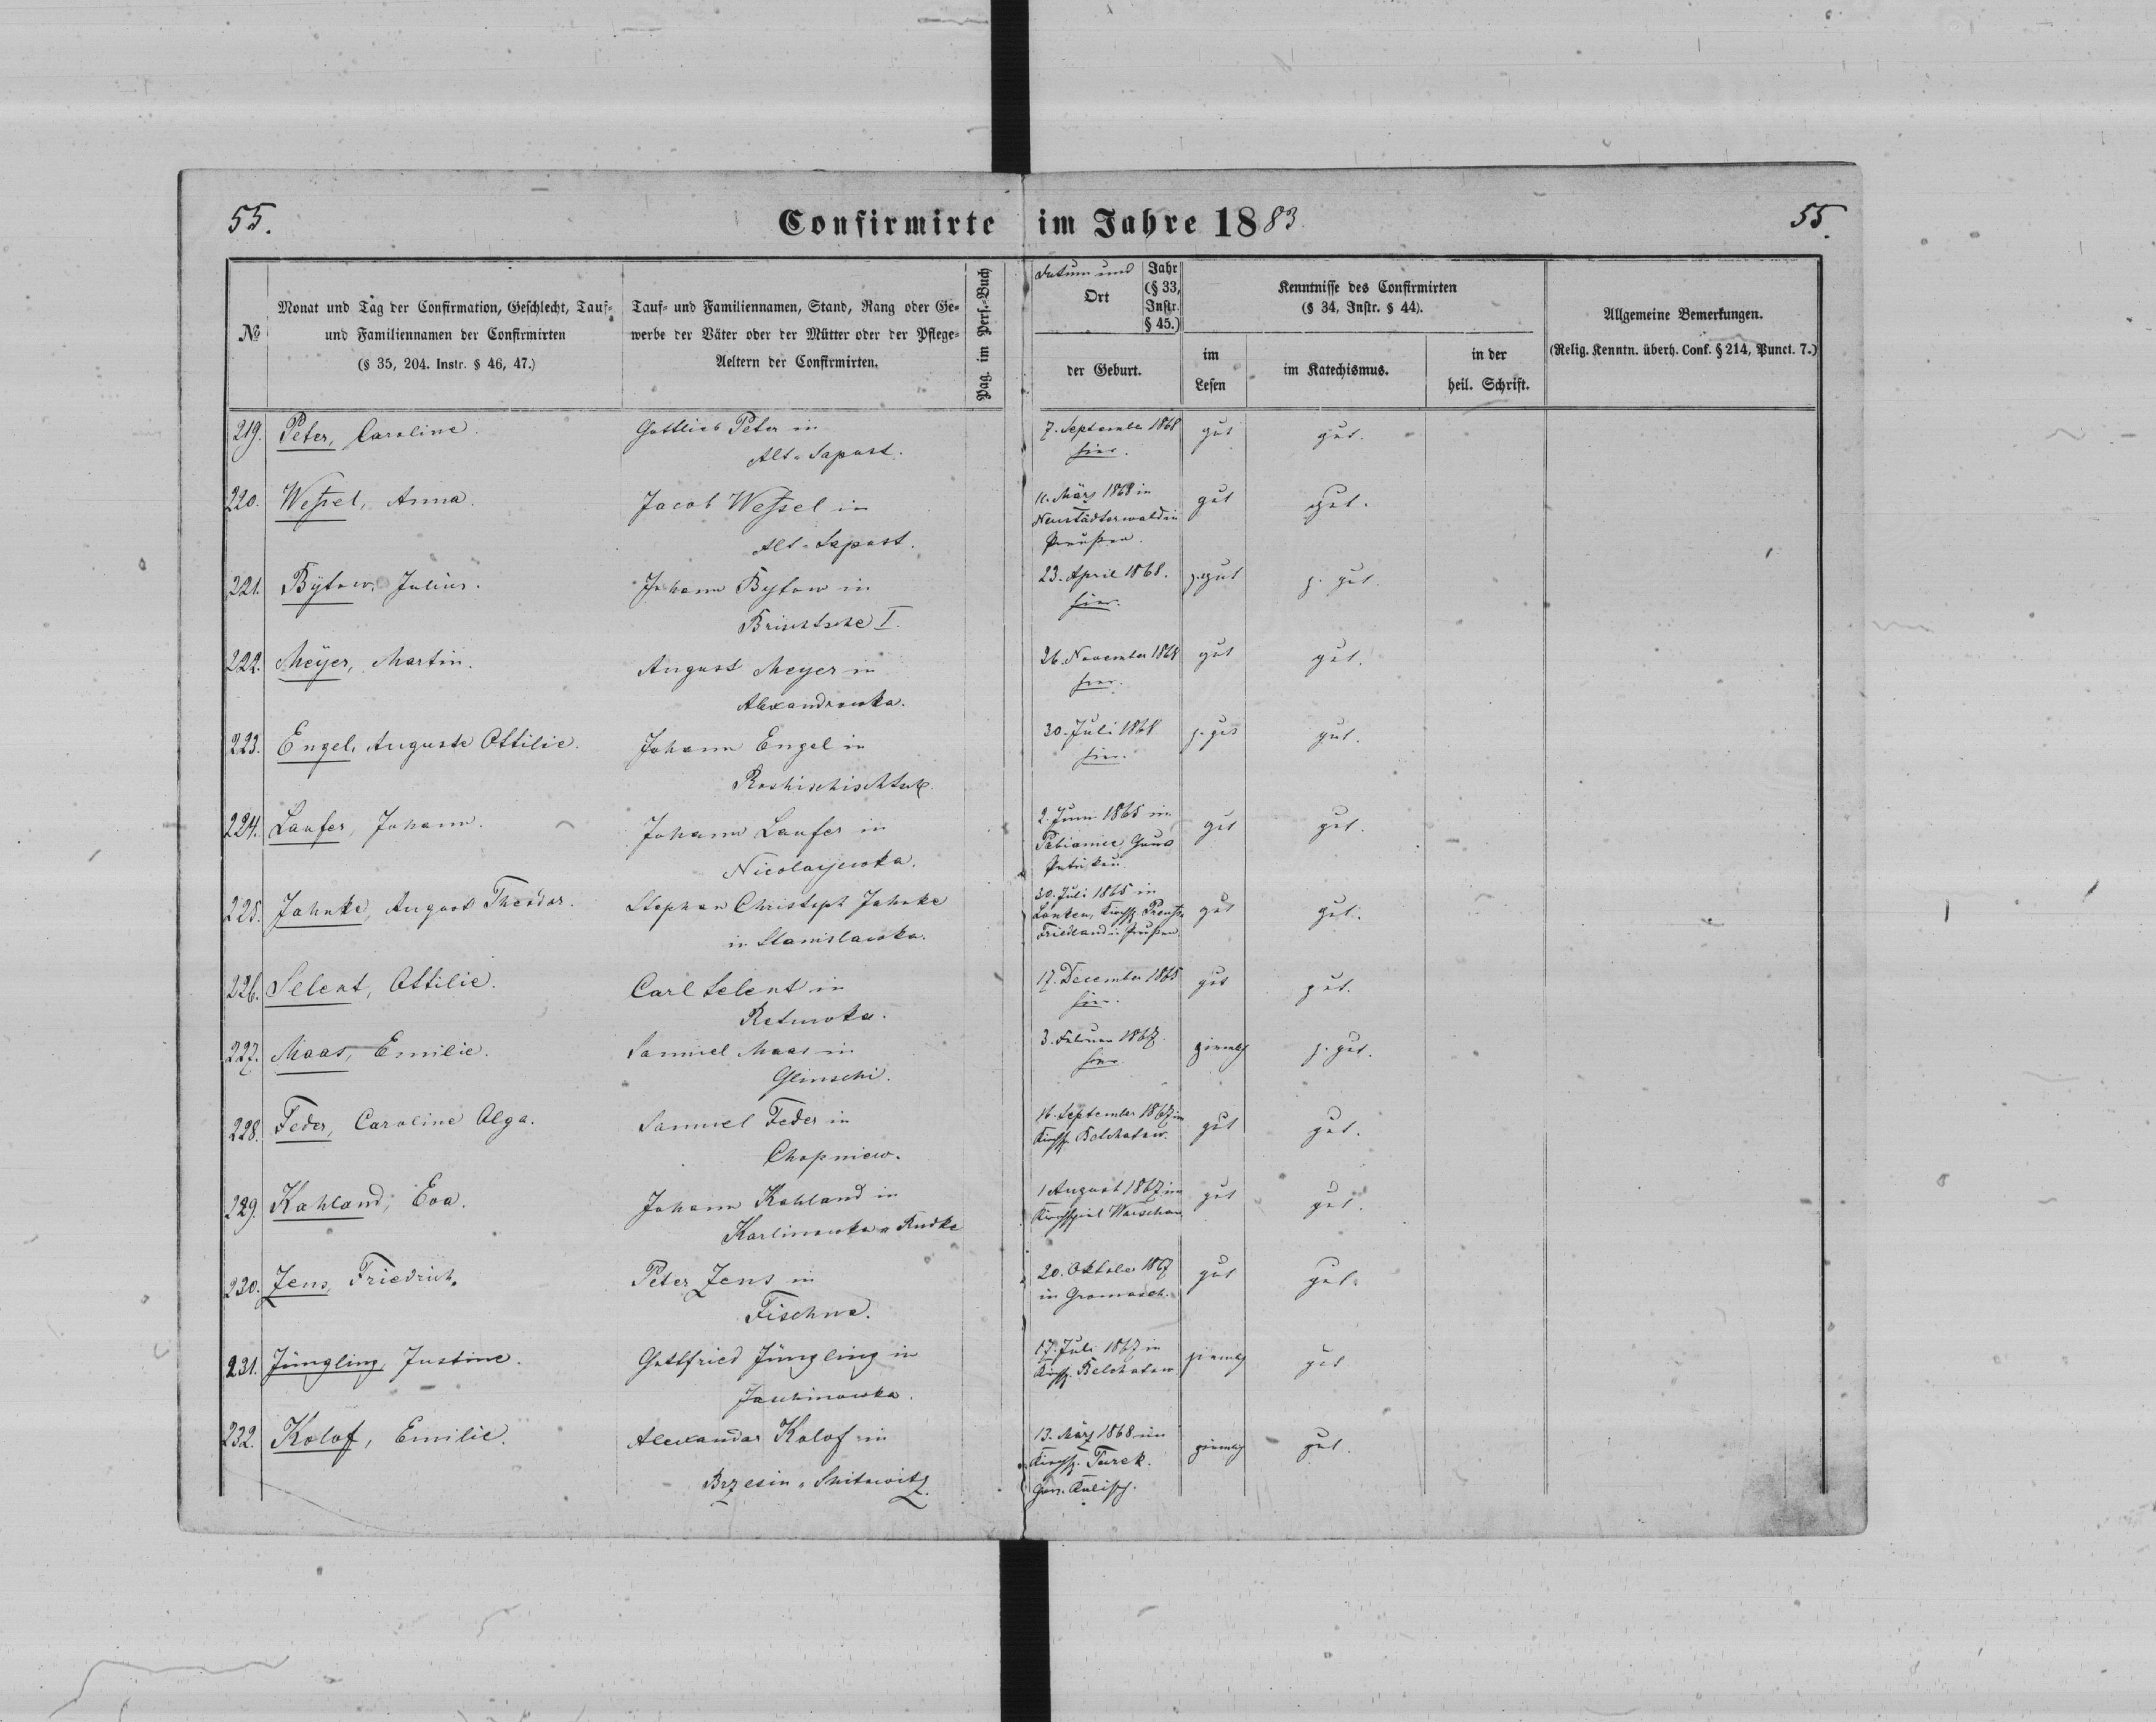 55.
Confirmirte im Jahre 1883.
55.
№
Monat und Tag der Confirmation, Geschlecht, Tauf-
und Familiennamen der Confirmirten
(§ 35, 204. Instr. § 46, 47.)
Tauf- und Familiennamen, Stand, Rang oder Ge-
werbe der Väter oder der Mütter oder der Pflege-
Aeltern der Confirmirten.
Pag. im Pers.-Buch
Datum und
Ort
Jahr
(§ 33,
Instr.
§ 45.)
der Geburt.
Kenntnisse des Confirmirten
(§ 34, Instr. § 44).
im
Lesen
im Katechismus.
in der
heil. Schrift.
Allgemeine Bemerkungen.
(Relig. Kenntn. überh. Conf. § 214, Punct. 7.)
219. Peter, Caroline. Gottlieb Peter in 7. September 1868 gut gut.
Alt-Sapust. hier.
220. Weßel, Anna. Jacob Weßel in 11. März 1868 in gut gut.
Neustädterwald in
Alt-Sapust. Preußen.
221. Bytow, Julius. Johann Bytow in 23. April 1868. z. gut z. gut.
Brischtsche I. hier.
222. Meyer, Martin. August Meyer in 26. November 1868 gut gut.
Alexandrowka. hier.
223. Engel, Auguste Ottilie. Johann Engel in 30. Juli 1868 z. gut gut.
hier.
224. Laufer, Johann. Johann Laufer in 2. Juni 1865 in gut gut.
Pabianice, Gouv.
Nicolayewka. Petrikau
225. Jahnke, August Theodor. Stephan Christoph Jahnke 30. Juli 1865 in gut gut.
Lanken, Kirchsp. Preuß.
in Stanislawka. Friedland in Preußen.
226. Selent, Ottilie. Carl Selent in 17. December 1865 gut gut.
hier.
227. Maas, Emilie. Samuel Maas in 3. Februar 1867. ziemlich z. gut.
Glinschi. hier.
228. Feder, Caroline Olga. Samuel Feder in 16. September 1867 im gut gut.
Chopniew. Kirchsp. Belchatow.
229. Kahland, Eva. Johann Kahland in 1 August 1867 im gut gut.
Karlinowka-Rudke Kirchspiel Warschau
230. Zens, Friedrich. Peter Zens in 20. Oktober 1867 gut gut.
Fischna. in Gromasch.
231. Jüngling, Justine. Gottfried Jüngling in 17. Juli 1867 in ziemlich gut
Jaschinowka. Kirchsp. Belchatow
232. Kolof, Emilie. Alexander Kolof in 13. März 1868 im ziemlich gut.
Kirchsp. Turek.
Brzesin-Snitowitz. Gouv. Kalisch.